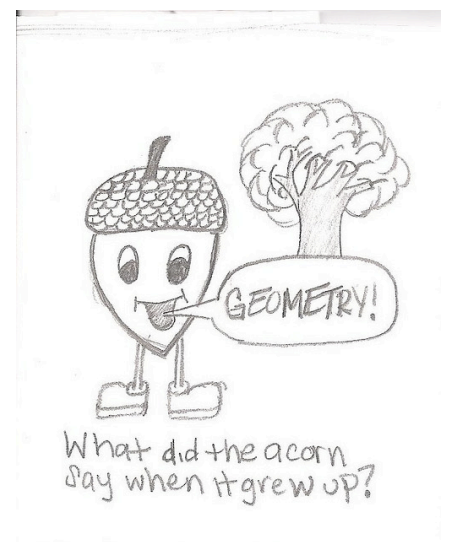 GEOMETRY!
What did the acorn
say when it grew up?